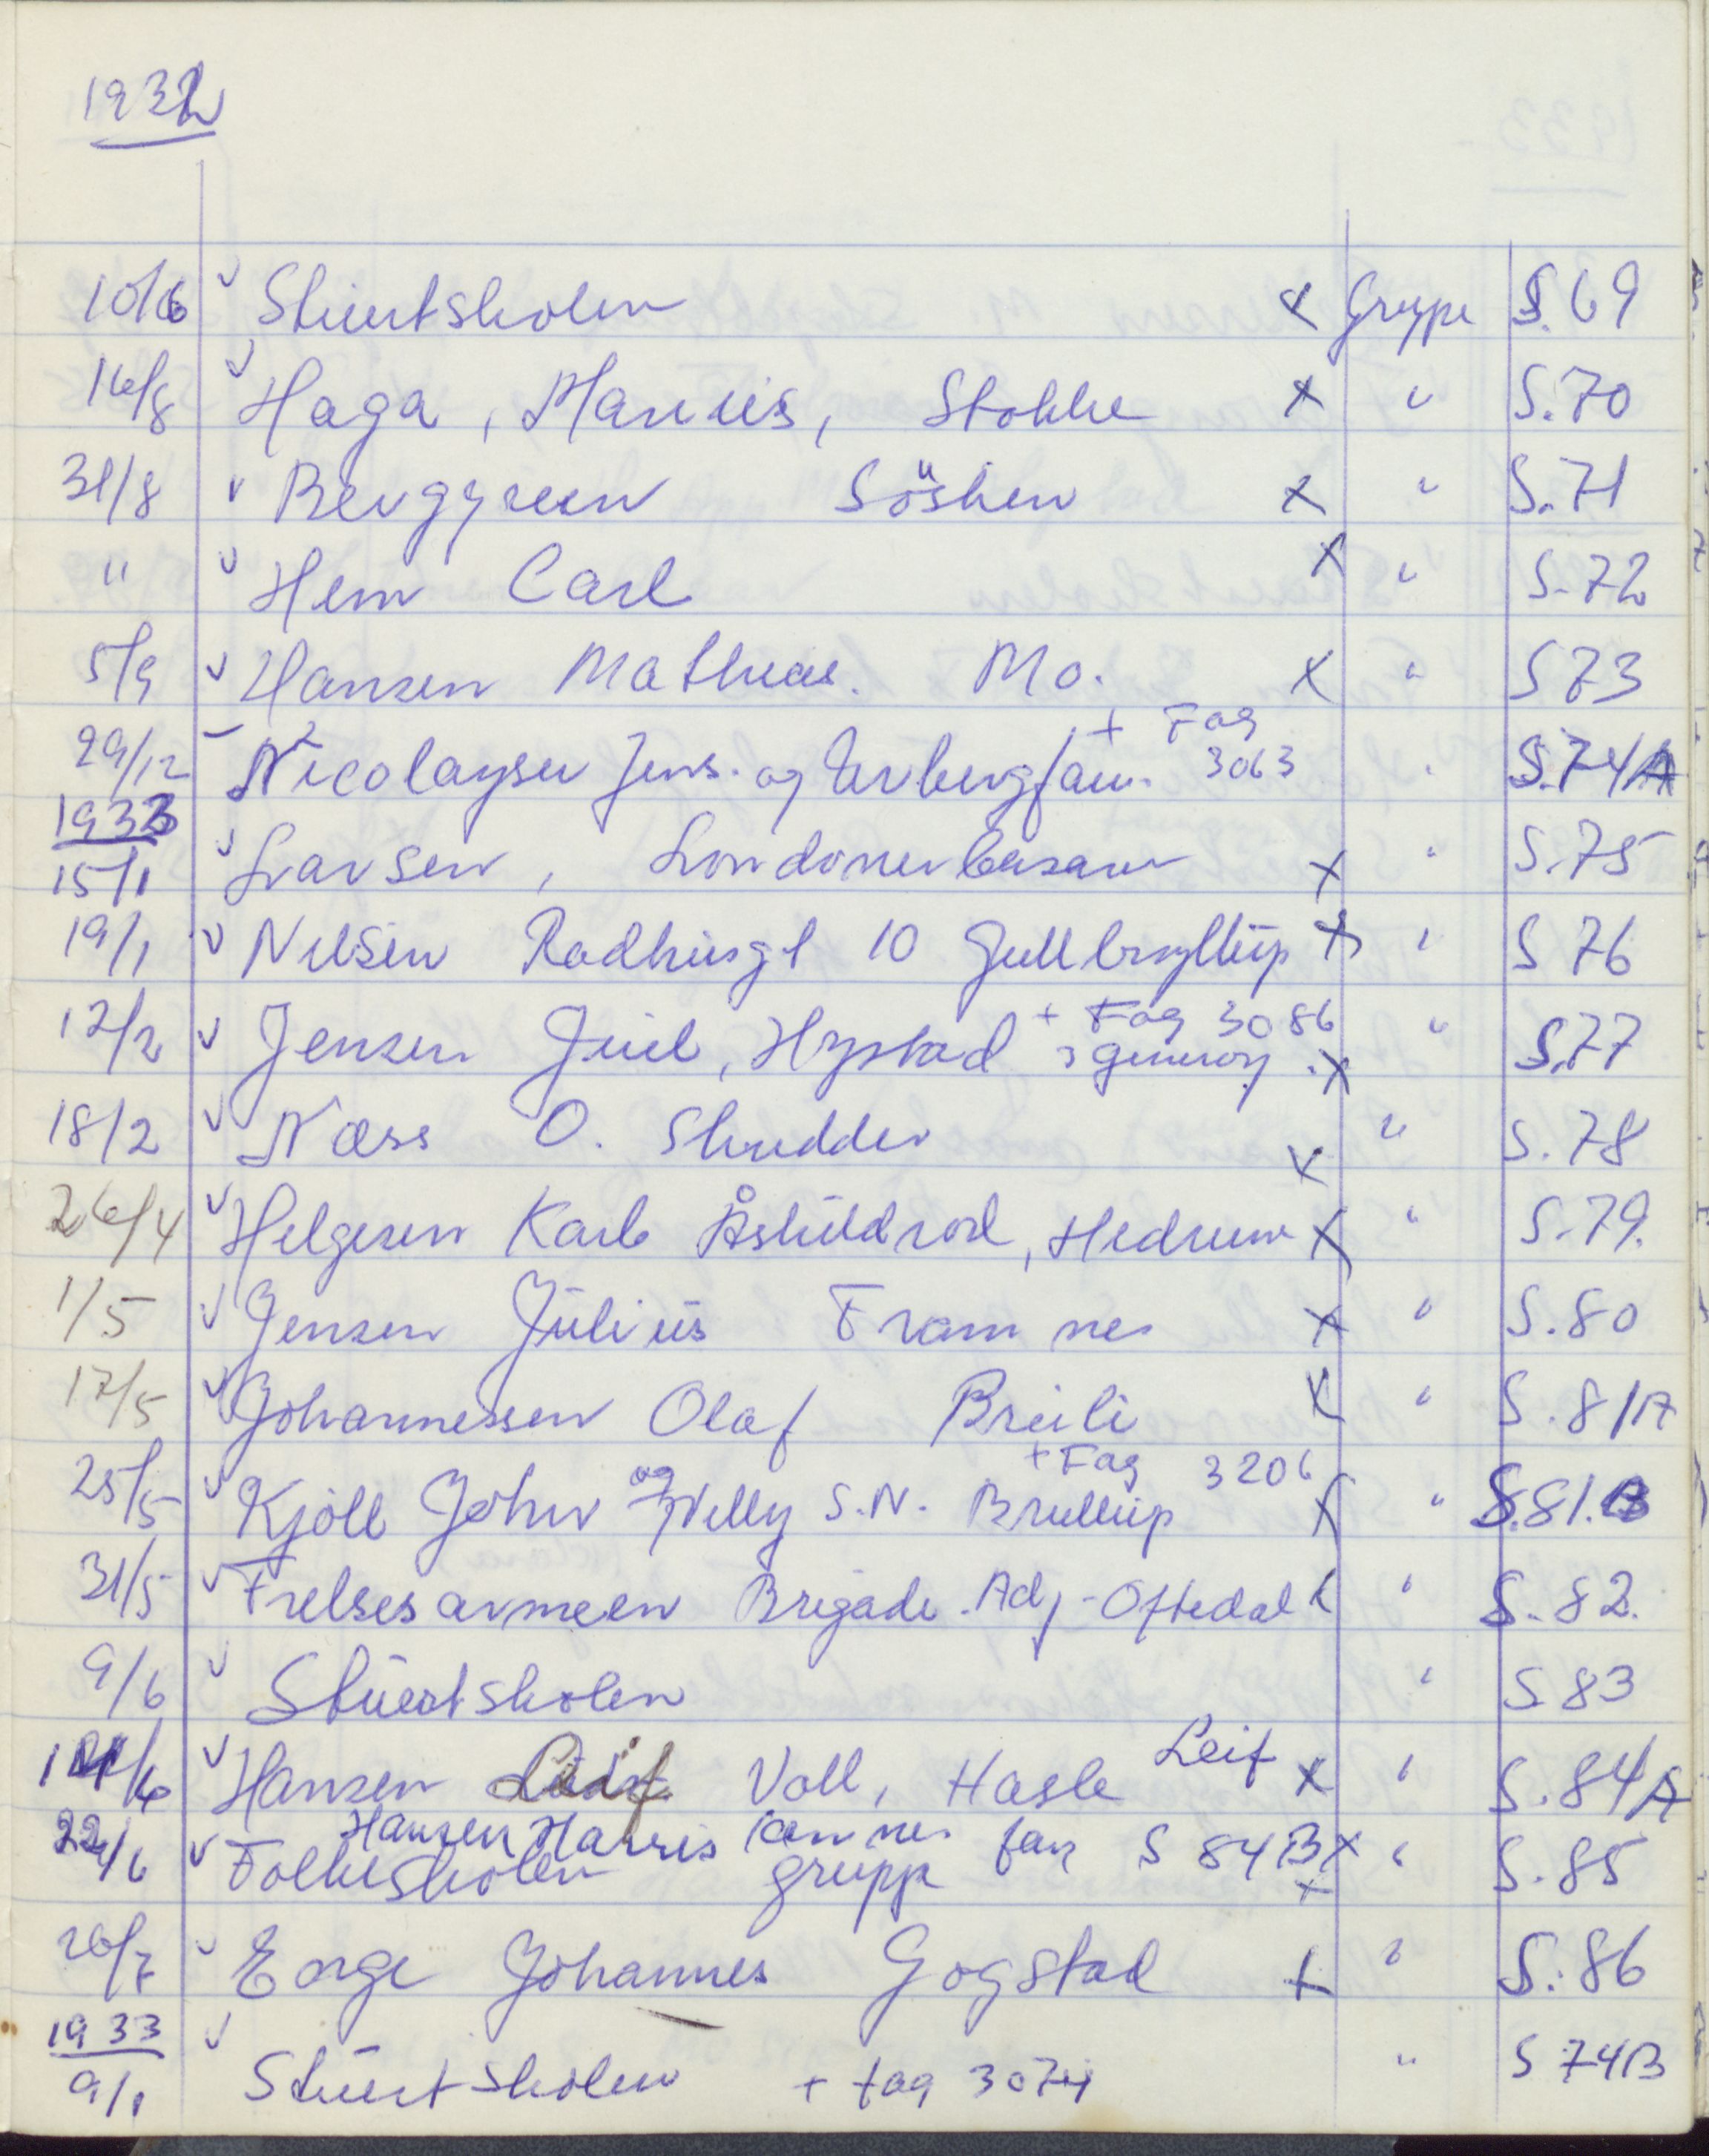 1932
10/6 v Stuertskolen x Gruppe S.69
16/8 v Haga, Marius, Stokke x " S.70
31/8 v Berggreen Sösken x " S.71
" v Hem Carl x " S.72
5/9 v Hansen Mathias. Mo. x " S 73
+ Fag
29/12 - Nicolaysen Jens. og fam. 3063 " S.74A
1933
15/1 v Larsen, Londonerbasar x " S.75
19/1 v Nilsen Rådhusgt 10 Gullbryllup x " S 76
+ Fag 3086
12/2 v Jensen Juel, Hystad 3 generasj. x " S.77
18/2 v Næss O. Skredder x " S.78
26/4 v Helgesen Karl Åskildrød, Hedrum x " S.79.
1/5 v Jensen Julius Framnes x " S.80
17/5 v Johannessen Olaf Breili x " S.81A
+ Fag 3206
25/5 v Kjöll John og Nelly S.N. Brullup x " S.81.B
31/5 v Frelsesarmeen Brigade. Adj-Oftedal x " S.82.
9/6 v Stuertskolen " S 83
14/6 v Hansen Leif Voll, Hasle Leif x " S.84A
Hansen Harris fag S 84B x
22/6 v Folkeskolen gruppe x " S.85
26/7 v Enge Johannes Gogstad x " S.86
1933 v
9/1 Stuertskolen + fag 3074 " S 74B